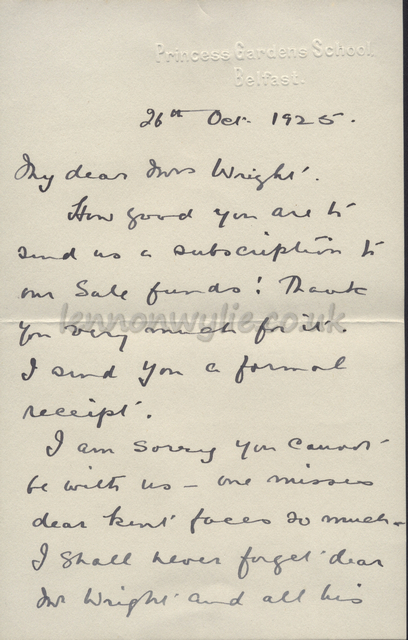 Princess Gardens School,
Belfast.
26th Oct. 1925.
My dear Mrs Wright.
How good you are to
send us a subscription to
our Sale funds! Thank
you very much for it.
lennonwylie.co.uk
I send you a formal
receipt.
I am sorry you cannot
be with us – one misses
dear kent faces so much –
I shall never forget dear
Mr Wright and all his